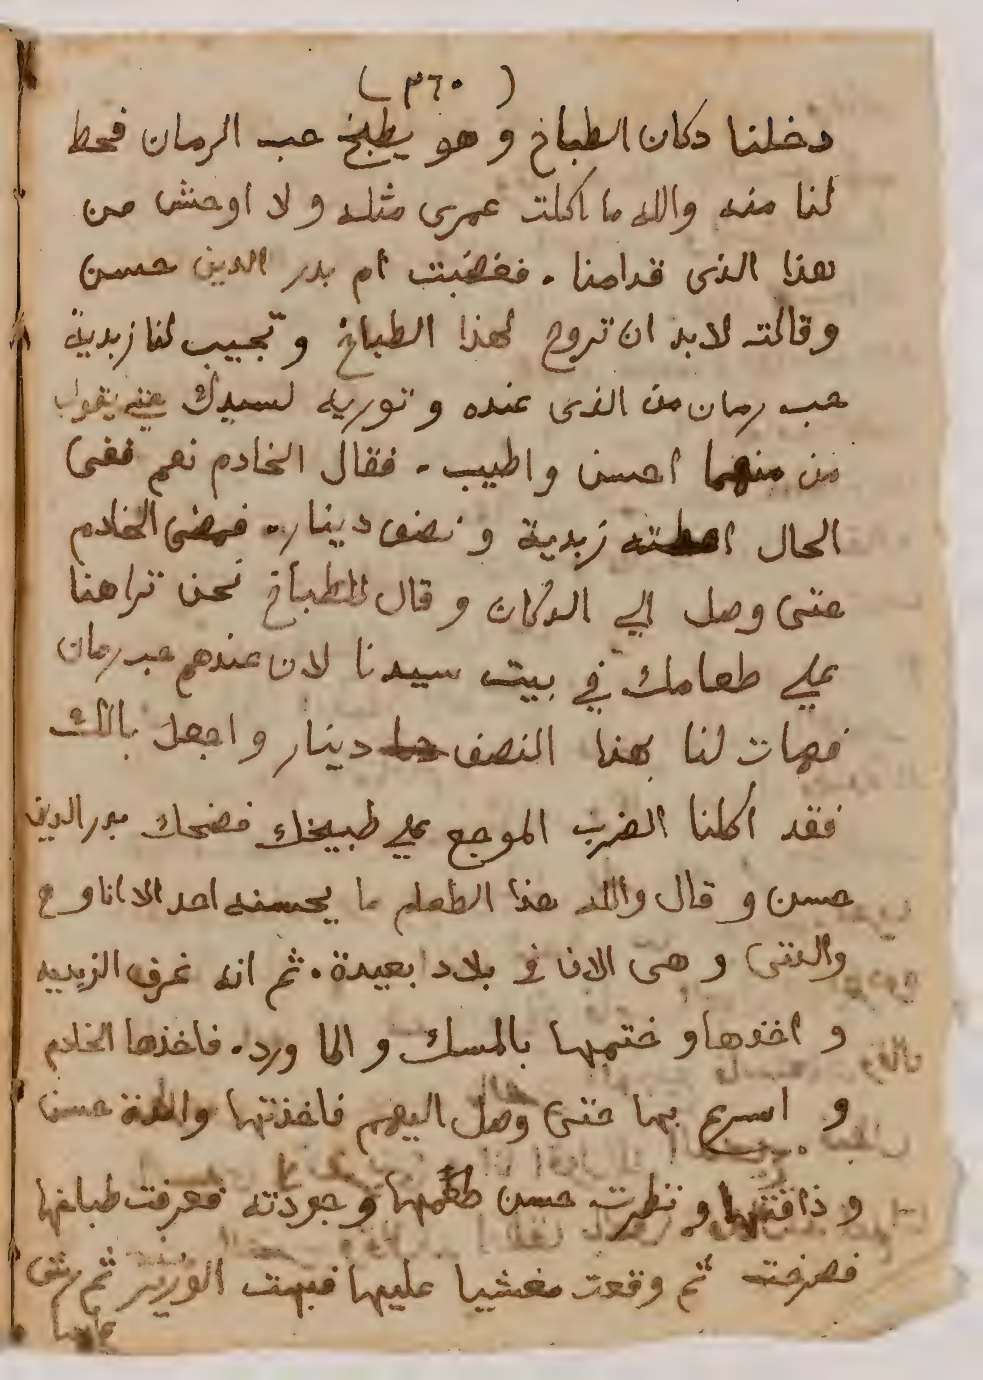 (٣٦٠)
دخلنا دكان الطباخ و هو يطبخ حب الرمان فحط
لنا منه والله ما اكلت عمرى مثله و لا اوحش من
هذا الذى قدامنا . فغضبت ام بدر الدين حسن
وقالت لابد ان تروح لهذا الطباخ و تجيب لنا زبدية
حب رمان من الذى عنده و توريه لسيدك حتى يقول
من منهما احسن واطيب . فقال الخادم نعم ففى
الحال اعطته زبدية و نصف دينار . فمضى الخادم
حتى وصل الي الدكان و قال للطباخ نحن تراهنا
علي طعامك في بيت سيدنا لان عندهم حب رمان
فهات لنا بهذا النصف دينار واجعل بالك
فقد اكلنا الضرب الموجع علي طبيخك فضحك بدر الدين
حسن و قال والله هذا الطعام ما يحسنه احد الا انا و
والدتى و هى الان في بلاد بعيدة . ثم انه غرف الزبديه
و اخذها و ختمها بالمسك و الما ورد . فاخذها الخادم
و اسرع بها حتى وصل اليهم فاخذتها والدة حسن
و ذاقتها و نظرت حسن طعمها و جودته فعرفت طباخها
فصرخت ثم وقعت مغشيا عليها فبهت الوزير ثم رش
عليها